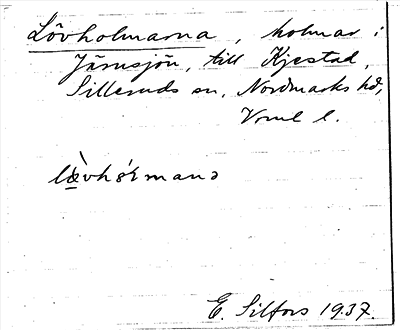 Lövholmarna, holmar i
Järnsjön, till Kjestad,
Silleruds sn, Nordmarks hd,
Vrml l.
lævhɷɫmanə
E. Silfors 1937.